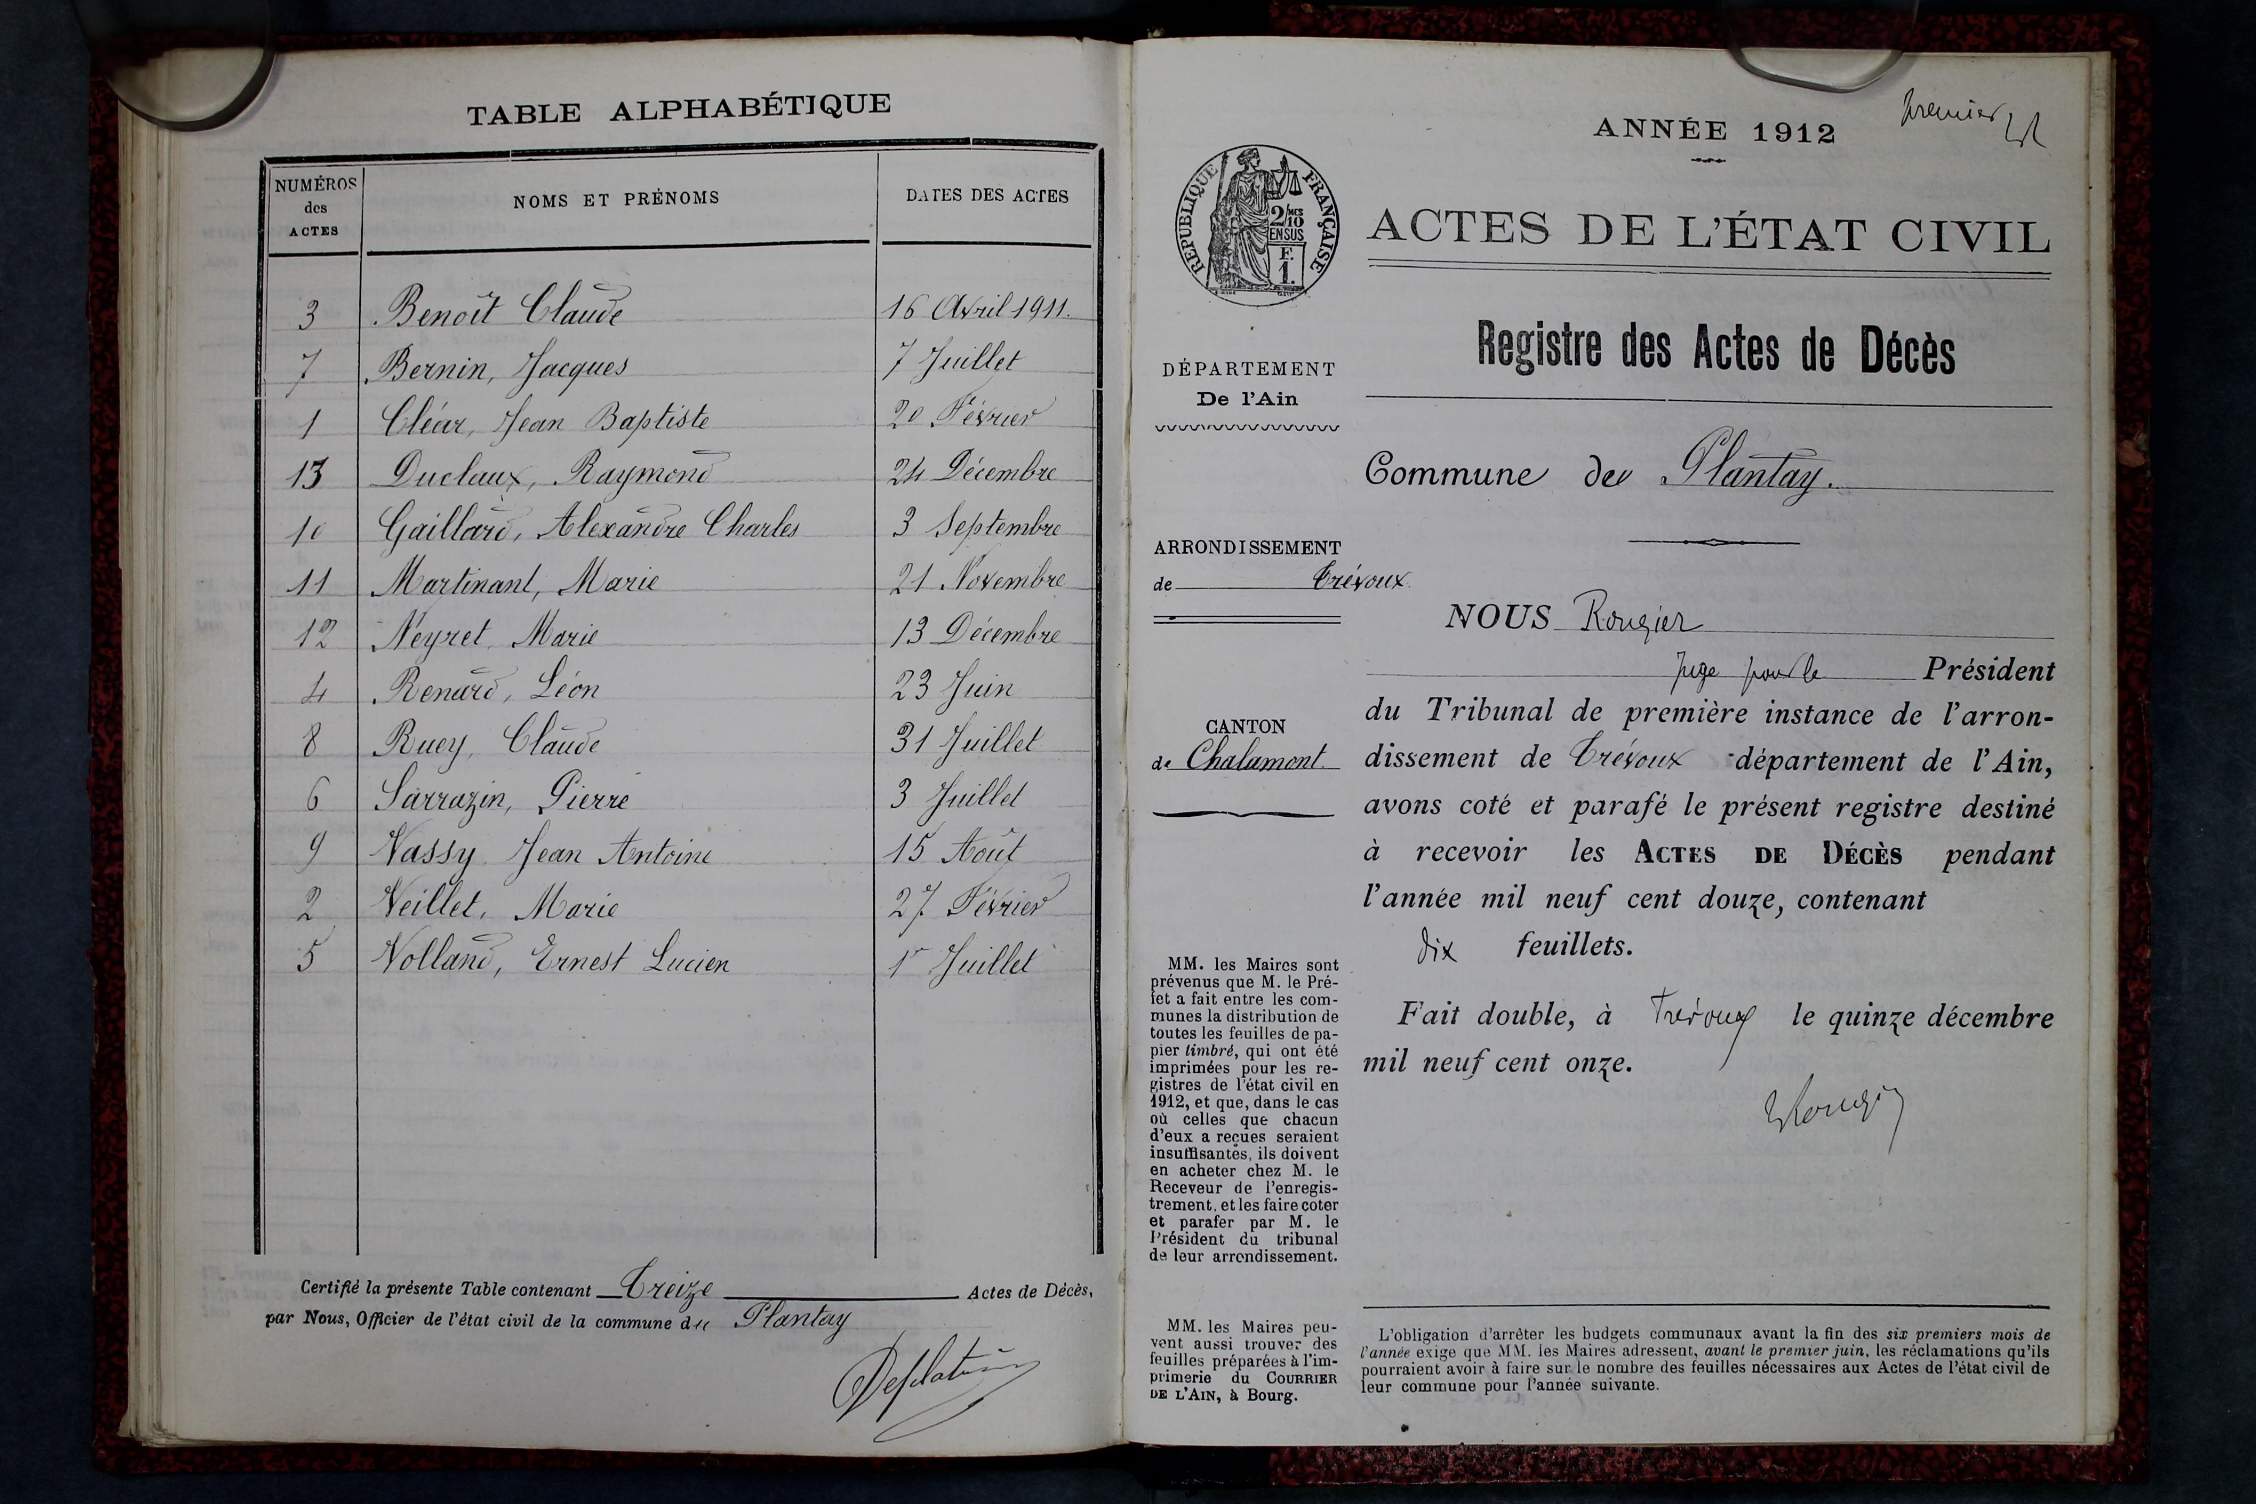 TABLE ALPHABÉTIQUE
NUMÉROS des ACTES
NOMS ET PRÉNOMS
DATES DES ACTES
3 Benoît Claude 16 Avril 1911.
7 Bernin, Jacques 7 Juillet
1 Cléar, Jean Baptiste 20 Février
13 Duclaux, Raymond 24 Décembre
10 Gaillard, Alexandre Charles 3 Septembre
11 Martinant, Marie 21 Novembre
12 Neyret, Marie 13 Décembre
4 Renard, Léon 23 Juin
8 Ruey, Claude 31 Juillet
6 Sarrazin, Pierre 3 Juillet
9 Vassy Jean Antoine 15 Août
2 Veillet, Marie 27 Février
5 Volland, Ernest Lucien 1r Juillet
Certifié la présente Table contenant Treize Actes de Décès,
par Nous, Officier de l'état civil de la commune du Plantay
premier
ANNÉE 1912
RÉPUBLIQUE FRANÇAISE
2/10 MES
EN SUS
F.
1.
ACTES DE L'ÉTAT CIVIL
Registre des Actes de Décès
DÉPARTEMENT
De l'Ain
Commune de Plantay.
ARRONDISSEMENT
de Trévoux
CANTON
de Chalamont
NOUS Rougier
juge pour le Président
du Tribunal de première instance de l'arron-
dissement de Trévoux département de l'Ain,
avons coté et parafé le présent registre destiné
à recevoir les ACTES DE DÉCÈS pendant
l'année mil neuf cent douze, contenant
dix feuillets.
Fait double, à Trévoux le quinze décembre
mil neuf cent onze.
Rougier
MM. les Maires sont
prévenus que M. le Pré-
fet a fait entre les com-
munes la distribution de
toutes les feuilles de pa-
pier timbré, qui ont été
imprimées pour les re-
gistres de l'état civil en
1912, et que, dans le cas
où celles que chacun
d'eux a reçues seraient
insuffisantes, ils doivent
en acheter chez M. le
Receveur de l'enregis-
trement, et les faire coter
et parafer par M. le
Président du tribunal
de leur arrondissement.
MM. les Maires peu-
vent aussi trouver des
feuilles préparées à l'im-
primerie du COURRIER
DE L'AIN, à Bourg.
L'obligation d'arrêter les budgets communaux avant la fin des six premiers mois de
l'année exige que MM. les Maires adressent, avant le premier juin, les réclamations qu'ils
pourraient avoir à faire sur le nombre des feuilles nécessaires aux Actes de l'état civil de
leur commune pour l'année suivante.